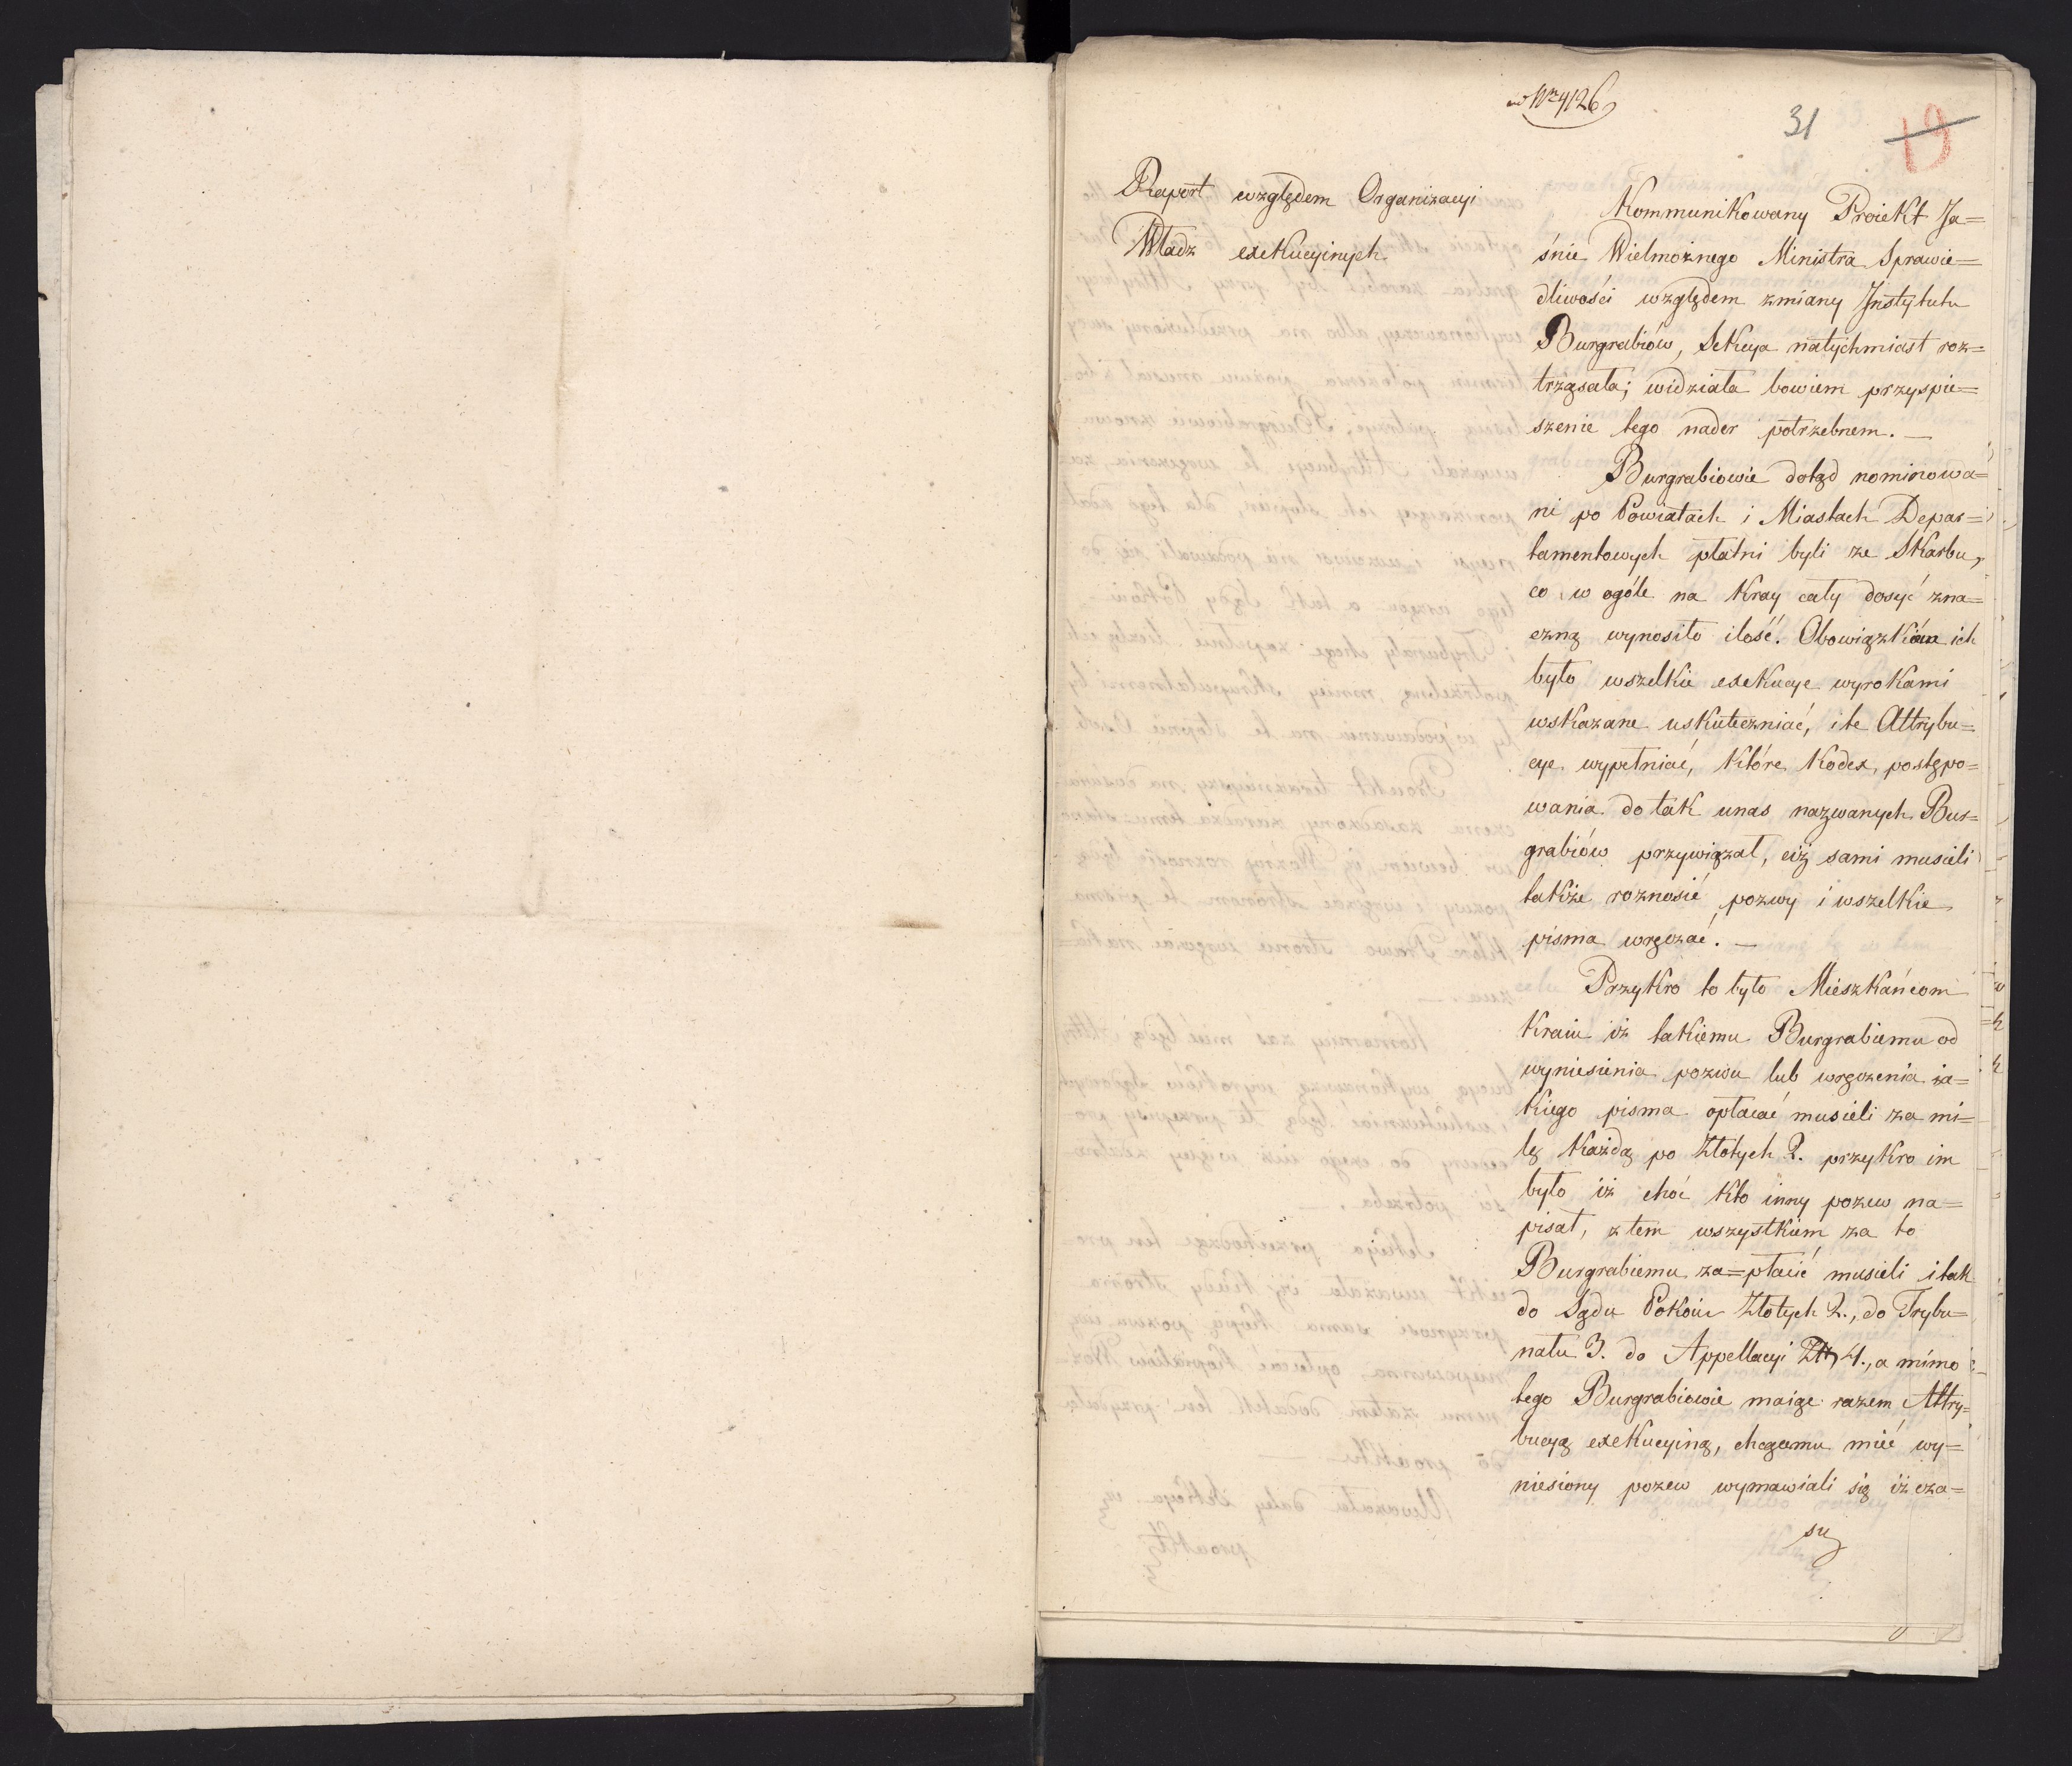 ad Nrm 4126
31
19
Raport względem Organizacyi
Władz exekucyinych
Kommunikowany Proiekt Ja=
śnie Wielmożnego Ministra Sprawie=
dliwości względem zmiany Instytutu
Burgrabiów, Sekcya natychmiast roz=
trząsała; widziała bowiem przyspie=
szenie tego nader potrzebnem. —
Burgrabiowie dotąd nominowa=
ni po Powiatach i Miastach Depar=
tamentowych płatni byli ze Skarbu,
co w ogóle na Kray cały dosyć zna=
czną wynosiło ilość. Obowiązkiem ich
było wszelkie exekucye wyrokami
wskazane uskuteczniać, i te Attrybu=
cye wypełniać, które Kodex postępo=
wania do tak unas nazwanych Bur=
grabiów przywiązał, ciż sami musieli
także roznosić pozwy i wszelkie
pisma wręczać. —
Przykro to było Mieszkańcom
Kraiu iż takiemu Burgrabiemu od
wyniesienia pozwu lub wręczenia ia=
kiego pisma opłacać musieli za mi=
lę każdą po Złotych 2. przykro im
było iż choć kto inny pozew na=
pisał, z tem wszystkiem za to
Burgrabiemu za=płacić musieli i tak
do Sądu Pokoiu Złotych 2., do Trybu=
nału 3. do Appellacyi Zł 4., a mimo
tego Burgrabiowie maiąc razem Attry=
bucyą exekucyiną, chcącemu mieć wy=
niesiony pozew wymawiali się iż cza=
su